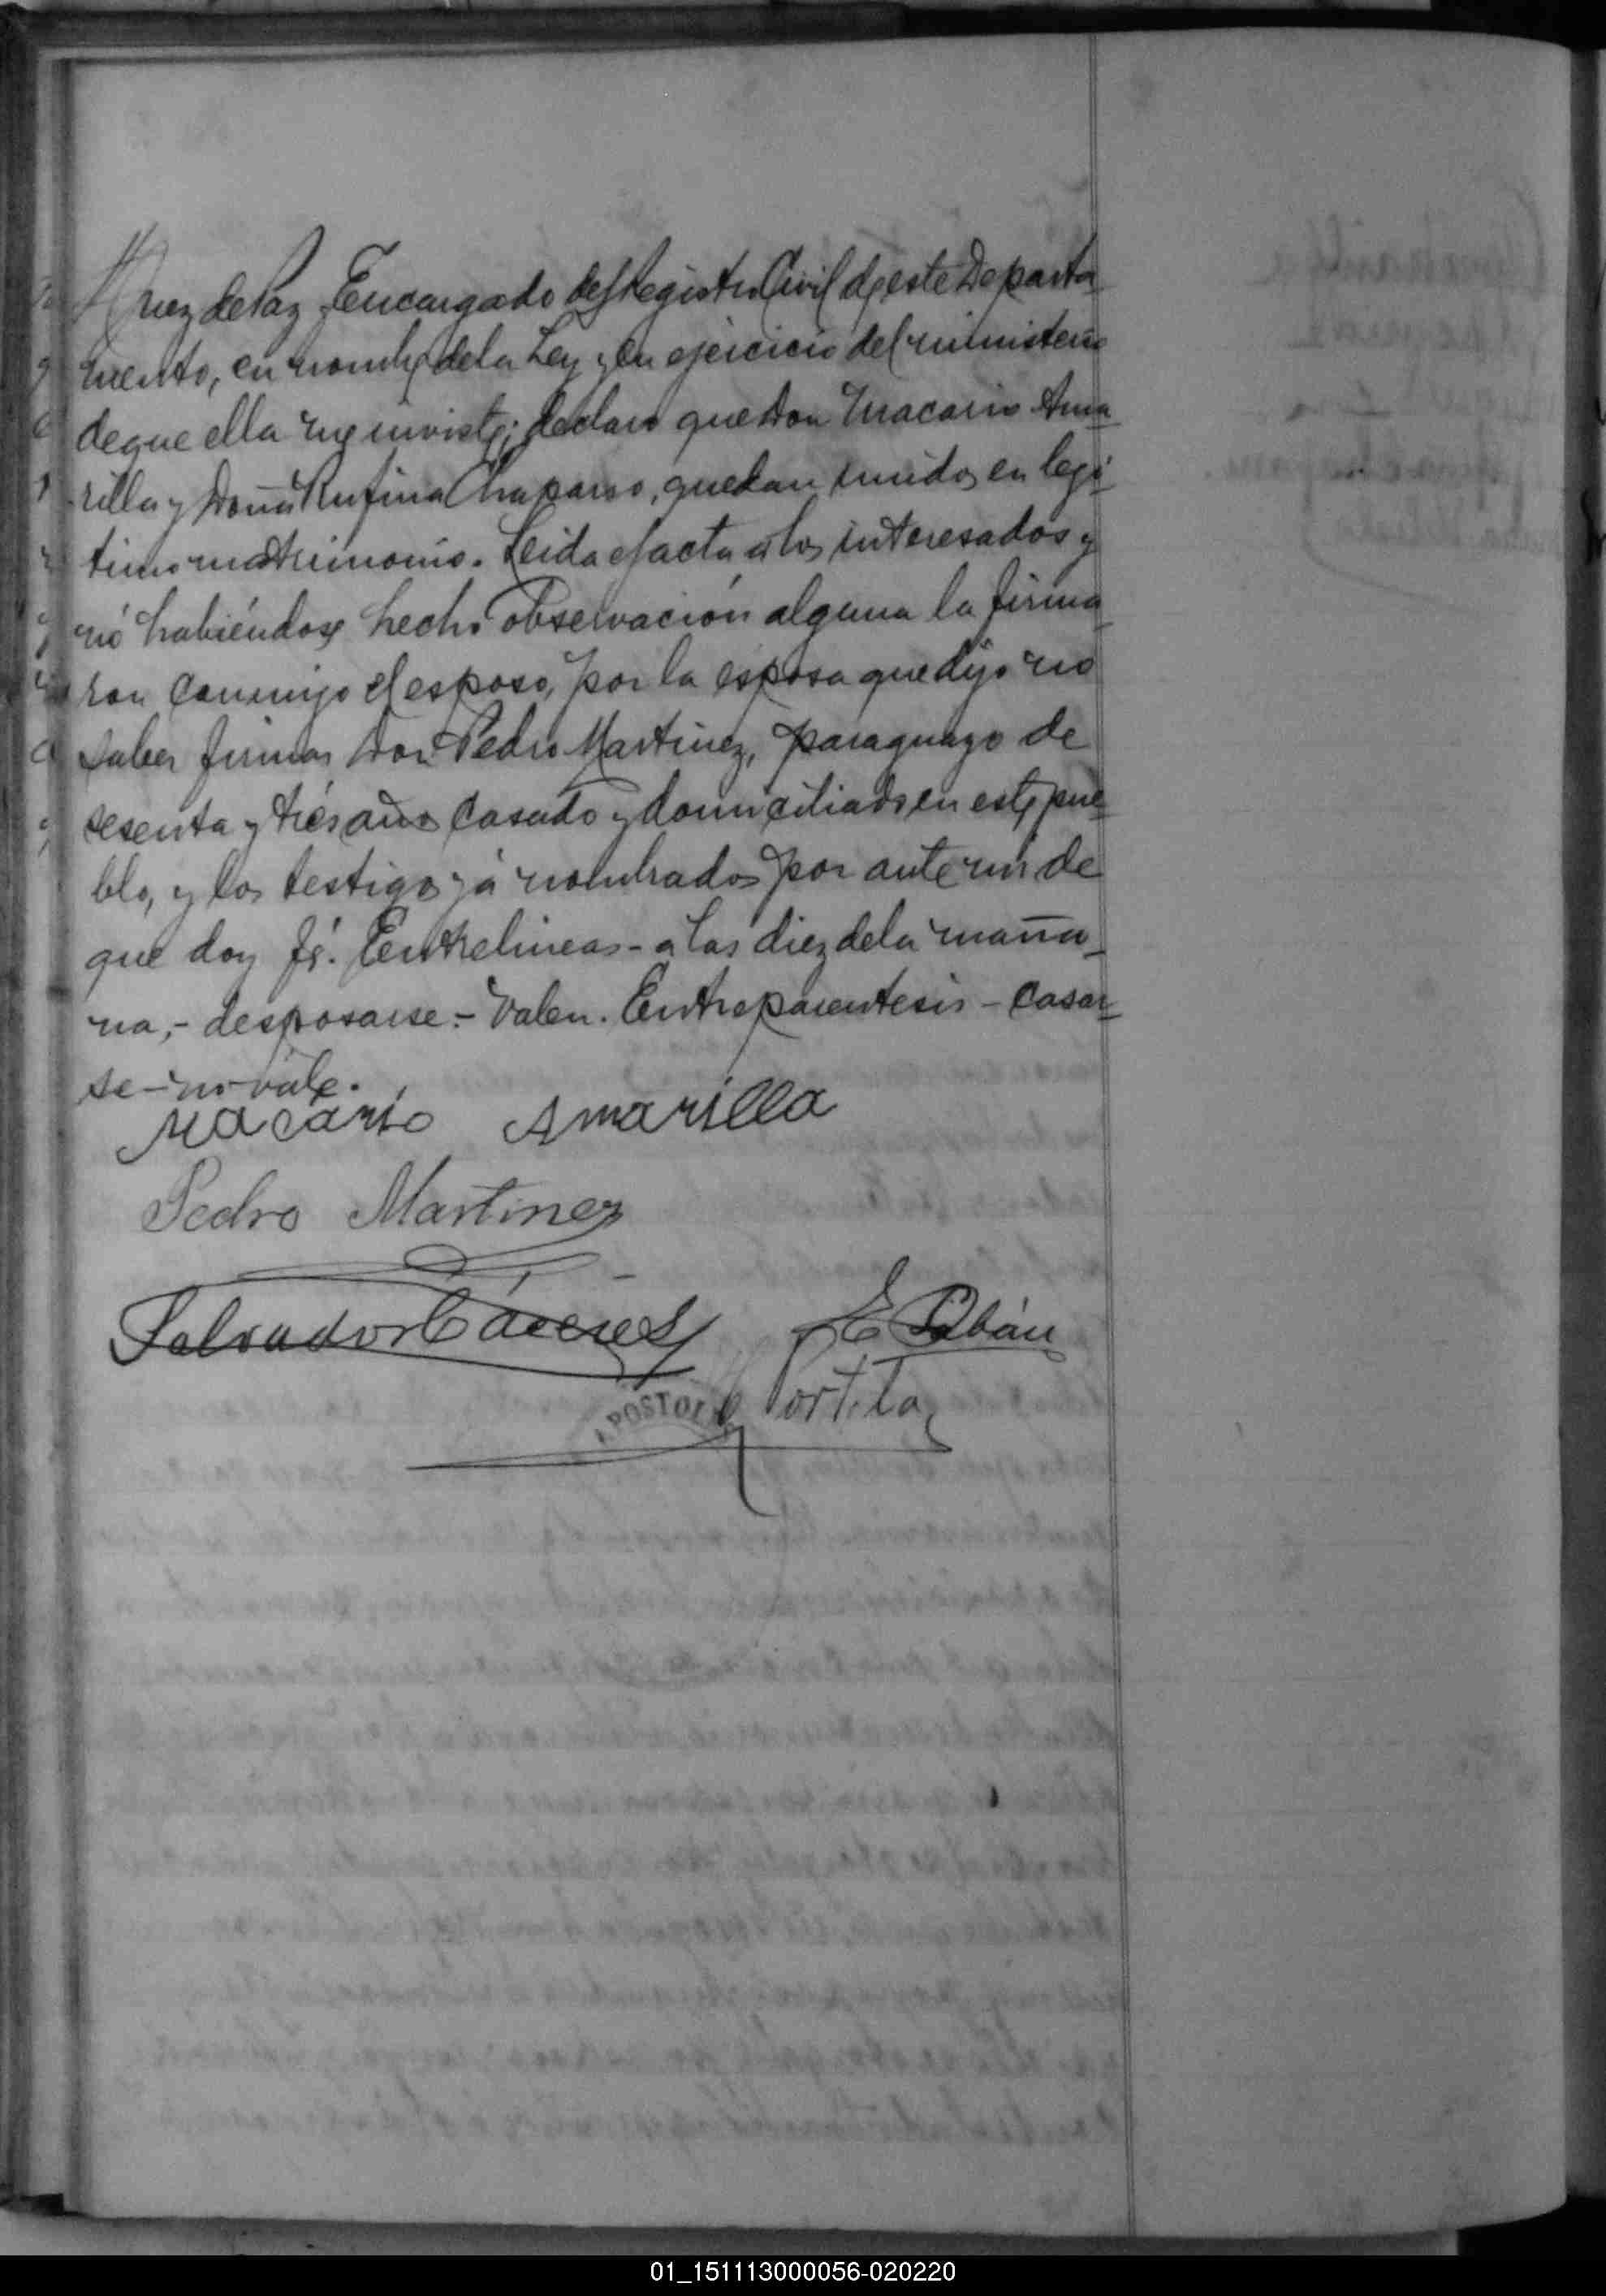 Juez de Paz Encargado del Registro Civil de este Departa-
mento, en nombre de la Ley y en ejercicio del ministerio
de que ella me inviste; declaro que Don Macario Ama-
rilla y Doña Rufina Chaparro, quedan unidos en legi-
timo matrimonio. Leida el acta a los interesados y
nó habiéndose hecho observación alguna la firma-
ron conmigo el esposo, por la esposa que dijo no
saber firmar Don Pedro Martinez, paraguayo de
sesenta y tres años casado y domiciliado en este pue-
blo, y los testigos yá nombrados por ante mi de
que doy fé. Entrelineas - a las diez de la maña-
na, - desposarse - Valen. Entreparentesis - casar-
se - no vale.
Macario Amarilla
Pedro Martinez
Salvador Cáceres
E Pabán
Portilla
POSTOL
01_151113000056-020220